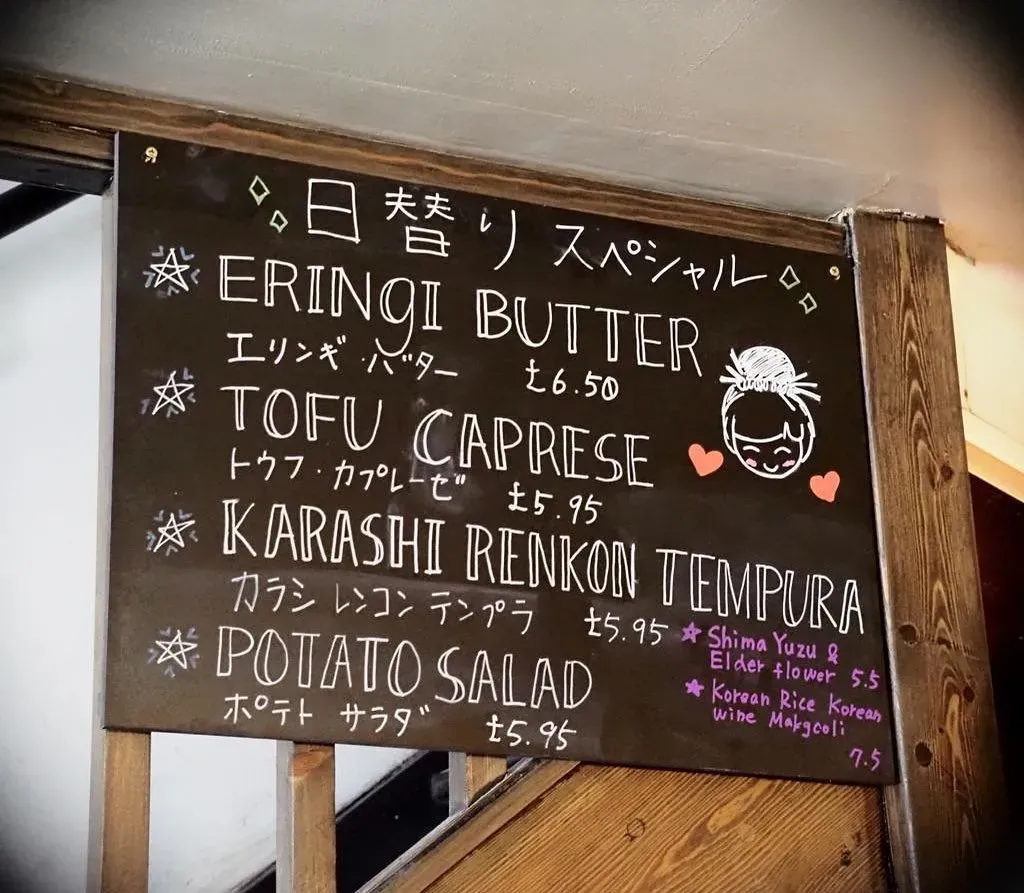 日替りスペシャル
ERINGI BUTTER
エリンギ・バター £6.50
TOFU CAPRESE
トウフ・カプレーゼ £5.95
KARASHI RENKON TEMPURA
カラシ レンコン テンプラ £5.95
POTATO SALAD
ポテト サラダ £5.95
Shima Yuzu &
Elder flower 5.5
Korean Rice Korean
wine Makgcoli
7.5